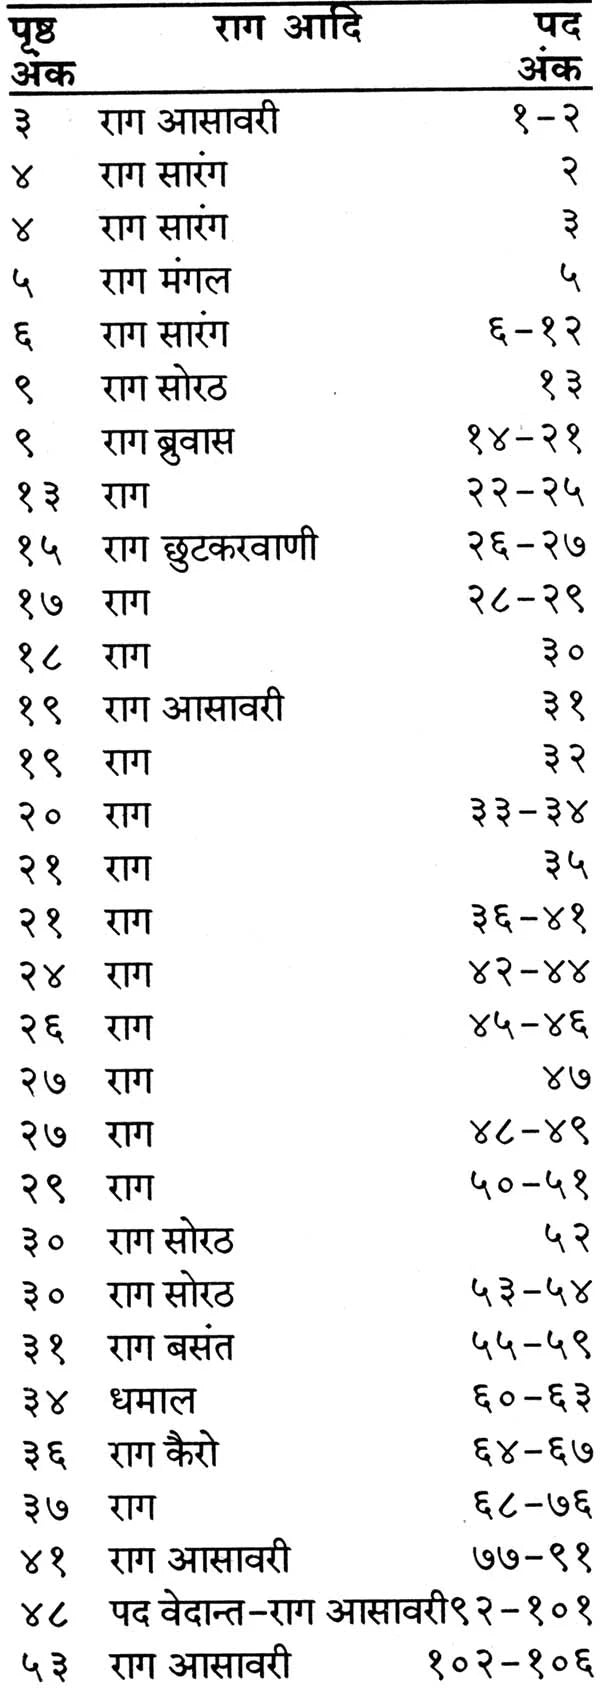 पृष्ठ राग आदि पद
अंक अंक
३ राग आसावरी १-२
४ राग सारंग २
४ राग सारंग ३
५ राग मंगल ५
६ राग सारंग ६-१२
९ राग सोरठ १३
९ राग ब्रुवास १४-२१
१३ राग २२-२५
१५ राग छुटकरवाणी २६-२७
१७ राग २८-२९
१८ राग ३०
१९ राग आसावरी ३१
१९ राग ३२
२० राग ३३-३४
२१ राग ३५
२१ राग ३६-४१
२४ राग ४२-४४
२६ राग ४५-४६
२७ राग ४७
२७ राग ४८-४९
२९ राग ५०-५१
३० राग सोरठ ५२
३० राग सोरठ ५३-५४
३१ राग बसंत ५५-५९
३४ धमाल ६०-६३
३६ राग कैरो ६४-६७
३७ राग ६८-७६
४१ राग आसावरी ७७-९१
४८ पद वेदान्त-राग आसावरी९२-१०१
५३ राग आसावरी १०२-१०६